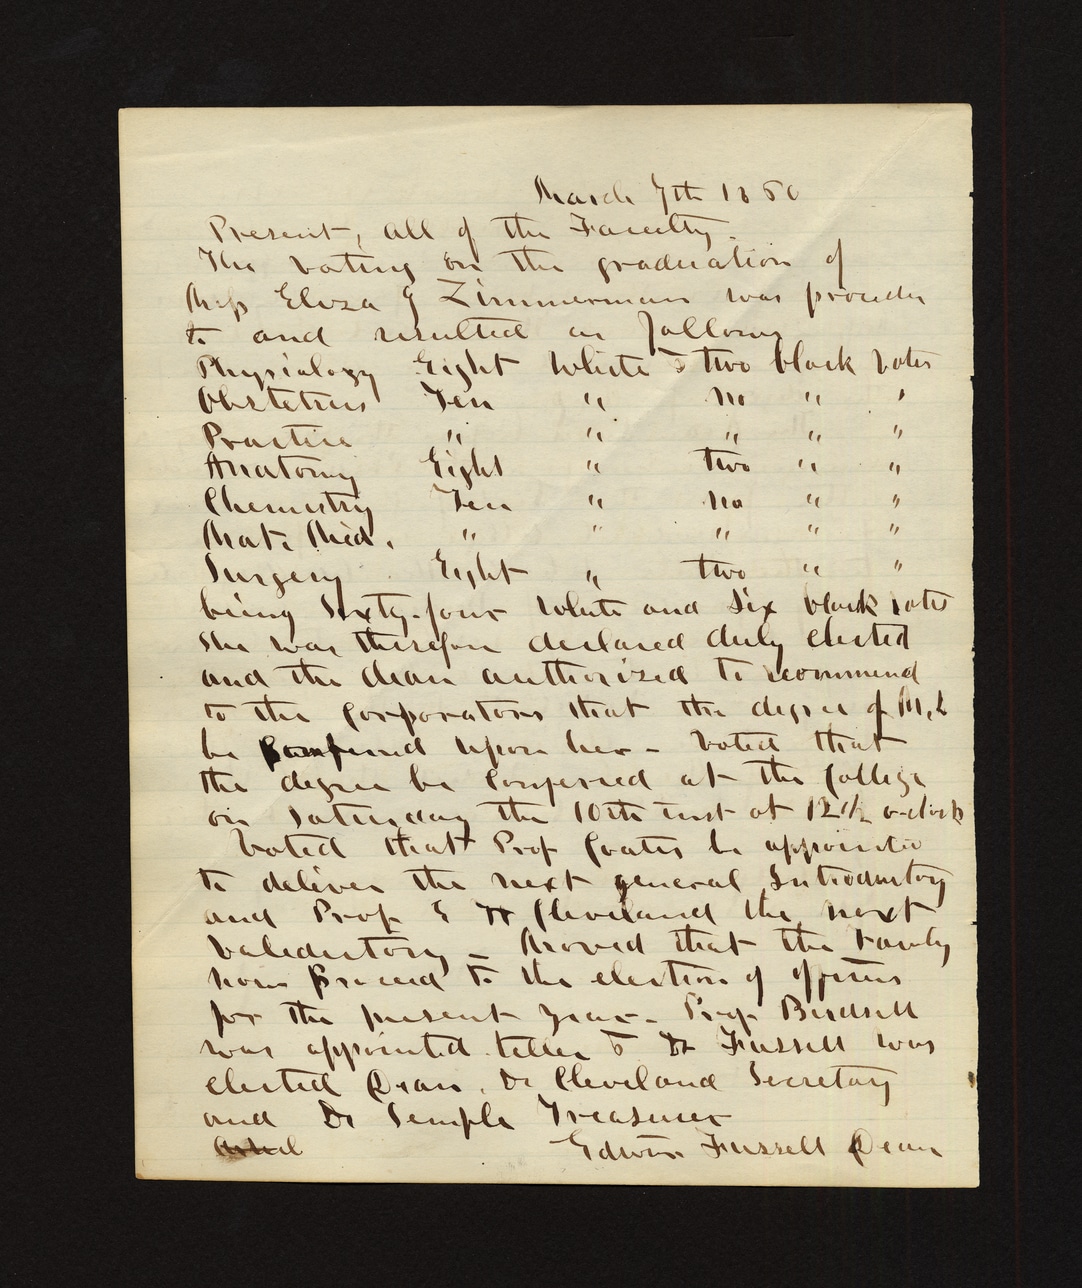 March 7th 1860
Present, all of the Faculty.
The voting on the graduation of
Miss Eliza G Zimmerman was proceeded
to and resulted as follows
Physiology Eight White & two black votes
Obstetrics Ten " no " "
Practice " " " " "
Anatomy Eight " two " "
Chemistry Ten " no " "
Mat. Med. " " " " "
Surgery Eight " two " "
being Sixty-four white and Six black votes
She was therefore declared duly elected
and the dean authorized to recommend
to the Corporators that the degree of M.D
be Conferred upon her - Voted that
the degree be Conferred at the College
on Saturday the 10th inst at 12 1/2 o-clock
Voted that Prof Coates be appointed
to deliver the next general Introductory
and Prof E H Cleveland the next
Valedictory - Moved that the Faculty
now proceed to the election of officers
for the present year - Prof Birdsell
was appointed teller & Dr Fussell was
elected Dean, Dr Cleveland Secretary
and Dr Semple Treasurer
Edwin Fussell Dean